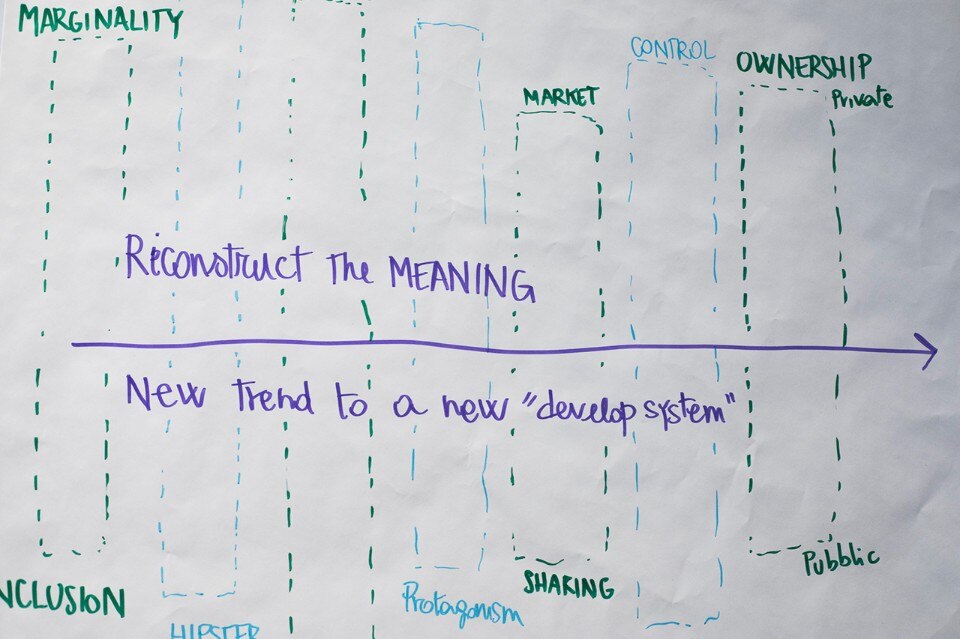 MARGINALITY
CONTROL
OWNERSHIP
Private
MARKET
Reconstruct The MEANING
New Trend to a new "develop system"
Pubblic
NCLUSION
Protagonism
SHARING
HIPSTER